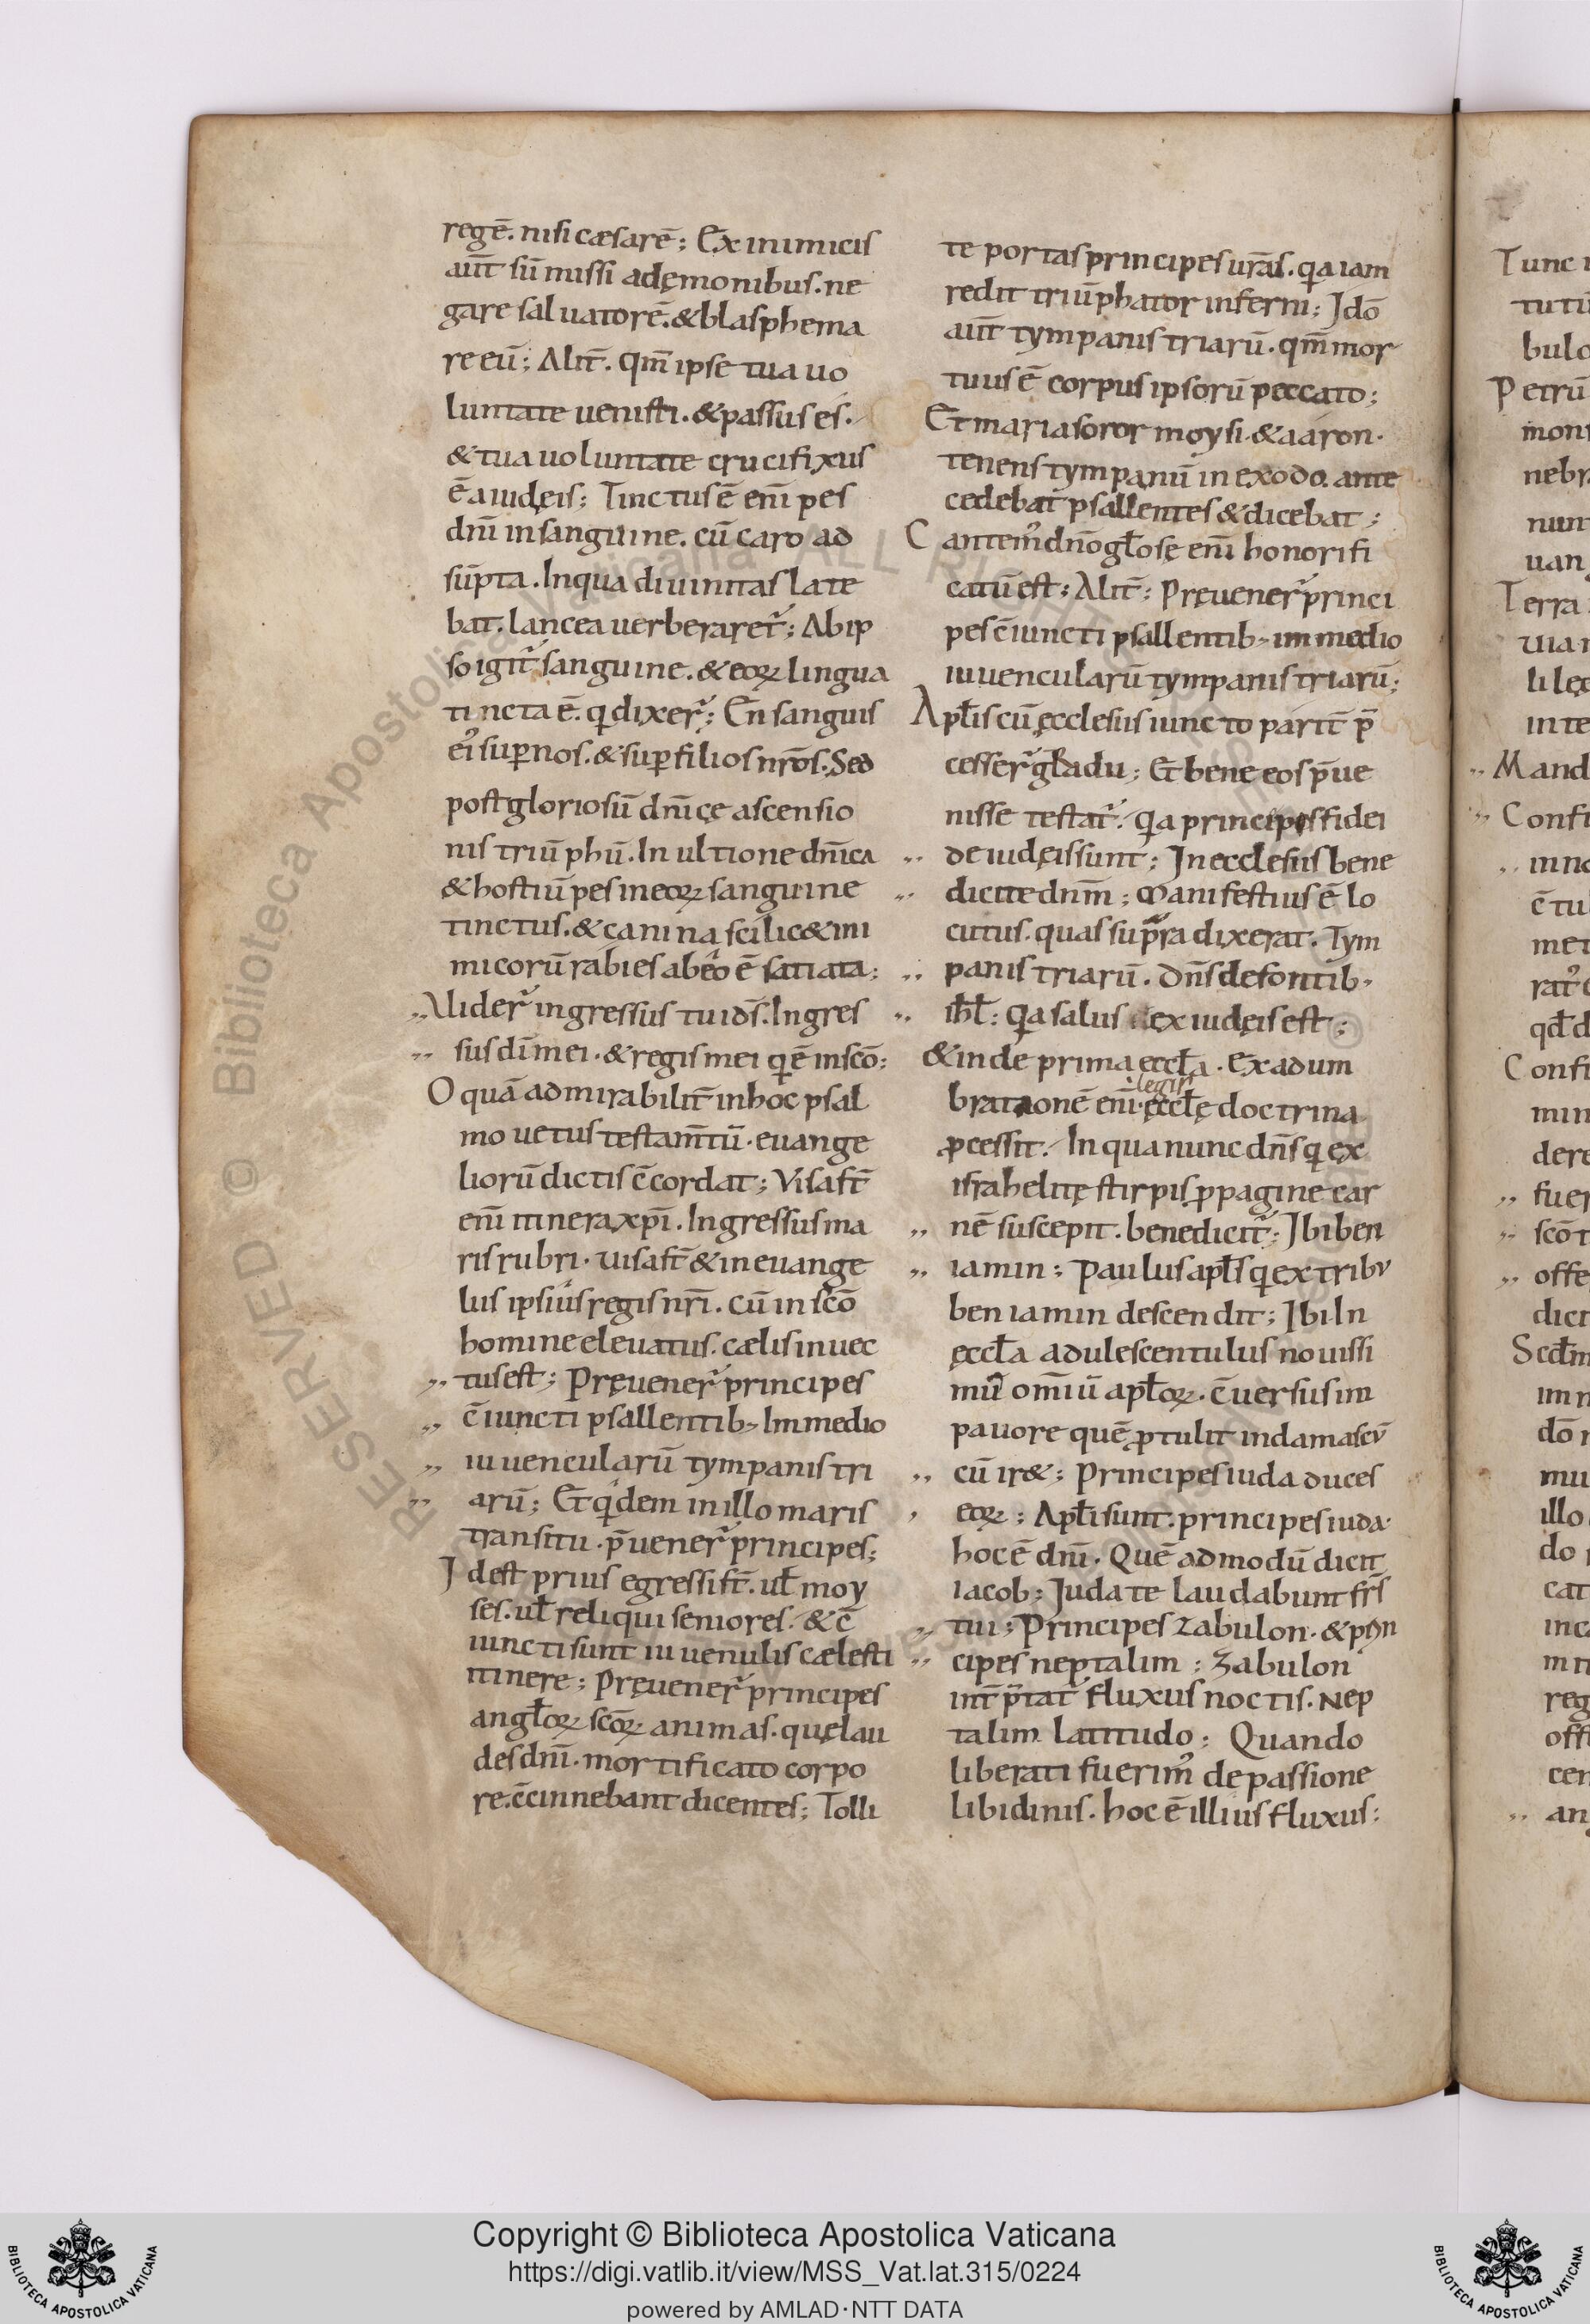 regē. nisi cæsarē; Ex inimicis
aūt sū missi adęmonibus. ne
gare saluatorē. & blasphema
re eū; Alit̄. Qm̄ ipse tua uo
luntate uenisti. & passus es.
& tua uoluntate crucifixus
ē a iudęis; Tinctus ē eni̅ pes
dn̄i in sanguine. cū caro ad
sūpta. In qua diuinitas late
bat. lancea uerberaret᷑; Ab ip
so igit᷑ sanguine. & eoꝝ lingua
tincta ē. q̇ dixer᷑; En sanguis
ei᾽ sup̄ nos. & sup̄ filios nr̄os. Sed
post gloriosū dn̄icę ascensio
nis triūphū. In ultione dn̄ica
& hostiū pes in eoꝝ sanguine
tinctus. & canina scilic& ini
micorū rabies ab eo ē satiata;
,, Uider᷑ ingressus tui d̄s. Ingres
,, sus dī mei. & regis mei q̇ ē in scō;
O quā admirabilit̄ in hoc psal
mo uetus testam̄tū. euange
liorū dictis c̄cordat; Visa st̄
eni̅ itinera xp̄i. Ingressus ma
ris rubri. uisa st̄ & in euange
liis ipsius regis nr̄i. cū in scō
homine eleuatus. cælis inuec
,, tus est; Pręuener᷑ principes
,, c̄iuncti psallentib, In medio
,, iuuencularū tympanistri
,, arū; Et q̇dem in illo maris
transitu. p̄uener᷑ principes;
Idest prius egressi st̄. uł moy
ses. uł reliqui seniores. & c̄
iuncti sunt iuuenulis cælesti
itinere; Pręuener᷑ principes
angłoꝝ scōꝝ animas. quę lau
des dn̄i. mortificato corpo
re. c̄cinnebant dicentes; Tolli
te portas principes ur̄as. q̇a iam
rediit triūphator inferni; Idō
aūt tympanistriarū. qm̄ mor
tuus ē corpus ipsorū peccato;
Et maria soror moysi. & aaron.
tenens tympanū in exodo. ante
cedebat psallentes & dicebat;
Cantem᾽ dn̄o głosę eni̅ honorifi
catū est; Alit̄; Pręuener᷑ princi
pes c̄iuncti psallentib, in medio
iuuencularū tympanistriarū;
Apłis cū ęcclesiis iuncto parit̄ p̄
cesser᷑ gradu; Et bene eos p̄ue
nisse testat᷑. Q̇a principes fidei
,, de iudęis sunt; In ecclesiis bene
,, dicite dn̄m; Manifestius ē lo
cutus. quas supra dixerat. Tym
,, panistriarū. Dn̄s de fontib,
,, ihł; Q̇a salus ex iudęis est;
& inde prima eccła. Ex adum
legis
bratione eni̅. ęccłę doctrina
ꝓcessit. In qua nunc dn̄s q̇ ex
israhelitę stirpis ꝓpagine car
,, nē suscepit. benedicit᷑; Ibi ben
,, iamin; Paulus apłs q̇ ex tribu
beniamin descendit; Ibi. In
ęccła adulescentulus nouissi
mū omīū apłoꝝ. c̄uersus in
pauore quē ꝓtulit in damascū
,, cū ir&; Principes iuda duces
, eoꝝ; Apłi sunt. principes iuda.
hoc ē dn̄i. Quē admodū dicit
iacob; Iuda te laudabunt fr̄s
,, tui; Principes zabulon. & prin
,, cipes neptalim; Zabulon
int̄p̄tat᷑ fluxus noctis. Nep
talim latitudo; Quando
liberati fuerim᾽ de passione
libidinis. hoc ē illius fluxus;
Tunc
Petrū
Terra
,, Mand
Copyright © Biblioteca Apostolica Vaticana
https://digi.vatlib.it/view/MSS_Vat.lat.315/0224
powered by AMLAD·NTT DATA
BIBLIOTECA APOSTOLICA VATICANA
BIBLIOTECA APOSTOLICA VATICANA